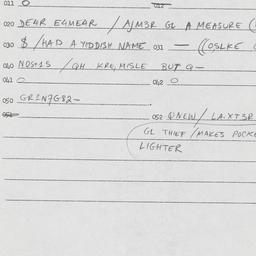 011 0
020 DEAR EGMEAR / AJM3R GL A MEASURE (
030 $ /HAD A YIDDISH NAME 031 — ((OSLKE (
040 NOS41S / QH KRO, MISLE BUT Q—
041 0 042 0
050 GR1N7G82—
052 QNEW/ LA.XT3R
GL THIEF /MAKES POCKE
LIGHTER